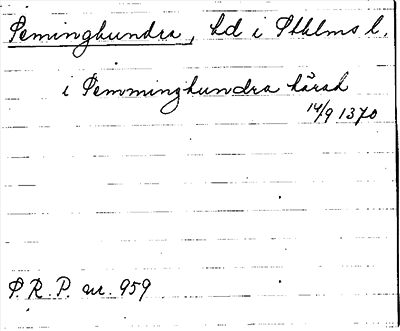 Seminghundra, hd i Sthlms l.
i Semminghundra härad
14/9 1370
S. R. P. nr. 959